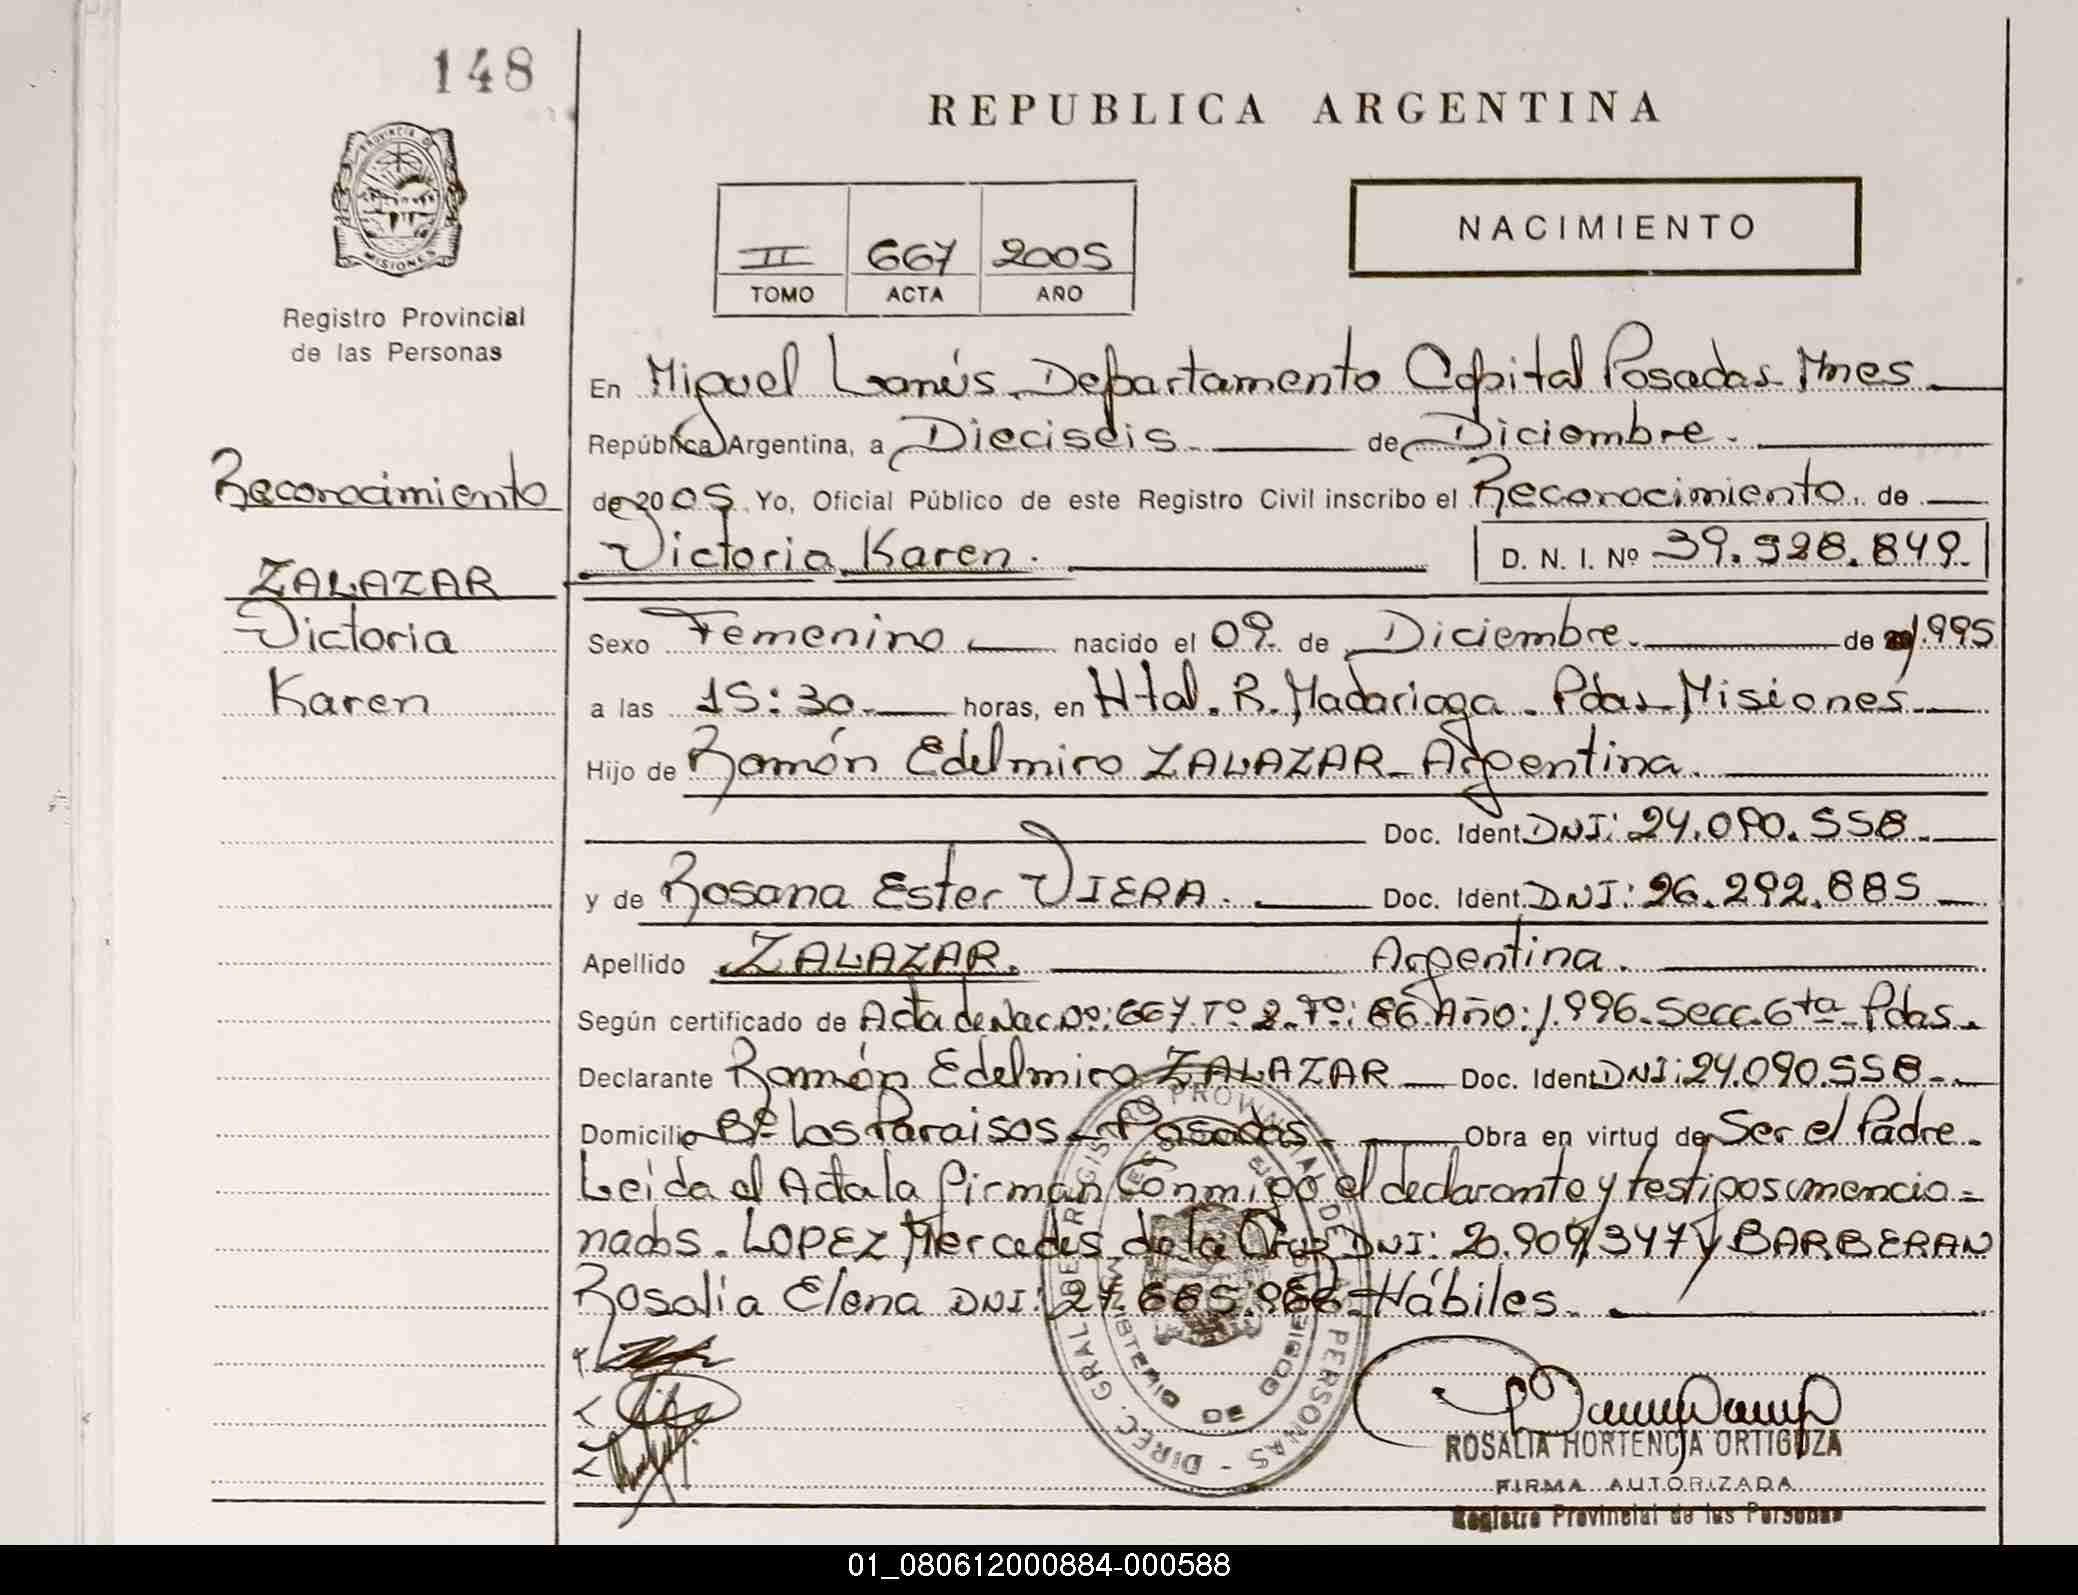 148
REPUBLICA ARGENTINA
PROVINCIA D
MISIONES
NACIMIENTO
II 667 2005
TOMO ACTA AÑO
Registro Provincial
de las Personas
En Miguel Lanús. Departamento Capital Posadas Mnes
República Argentina, a Dieciseis. de Diciembre.
Reconocimiento
de 2005. Yo, Oficial Público de este Registro Civil inscribo el Reconocimiento. de
Victoria Karen. D. N. I. Nº 39.528.849.
ZALAZAR
Victoria
Karen
Sexo Femenino nacido el 09. de Diciembre. de 1.995
a las 15:30. horas, en Htal. R. Madariaga. Pdas-Misiones.
Hijo de Ramón Edelmiro ZALAZAR_ Argentina.
Doc. Ident. DNI: 24.090.558.
y de Rosana Ester VIERA. Doc. Ident. DNI: 26.292.885
Apellido ZALAZAR. Argentina.
Según certificado de Acta de Nac. Nº: 667. Tº 2. Fº: 66 Año: 1.996. Secc. 6ta Pdas.
Declarante Ramón Edelmiro ZALAZAR Doc. Ident. DNI: 24.090.558.
Domicilio Bº Los Paraisos - Posadas. Obra en virtud de Ser el Padre.
Leída el Acta la firman Conmigo el declarante y testigos mencio-
nados. LOPEZ Mercedes de la Cruz DNI: 20.909/347 y BARBERAN
Rosalia Elena DNI: Hábiles.
DIREC. GRAL. DE REGISTRO PROVINCIAL DE LAS PERSONAS
MINISTERIO DE GOBIERNO
ROSALIA HORTENCIA ORTIGOZA
FIRMA AUTORIZADA
Registro Provincial de las Personas
01_080612000884-000588